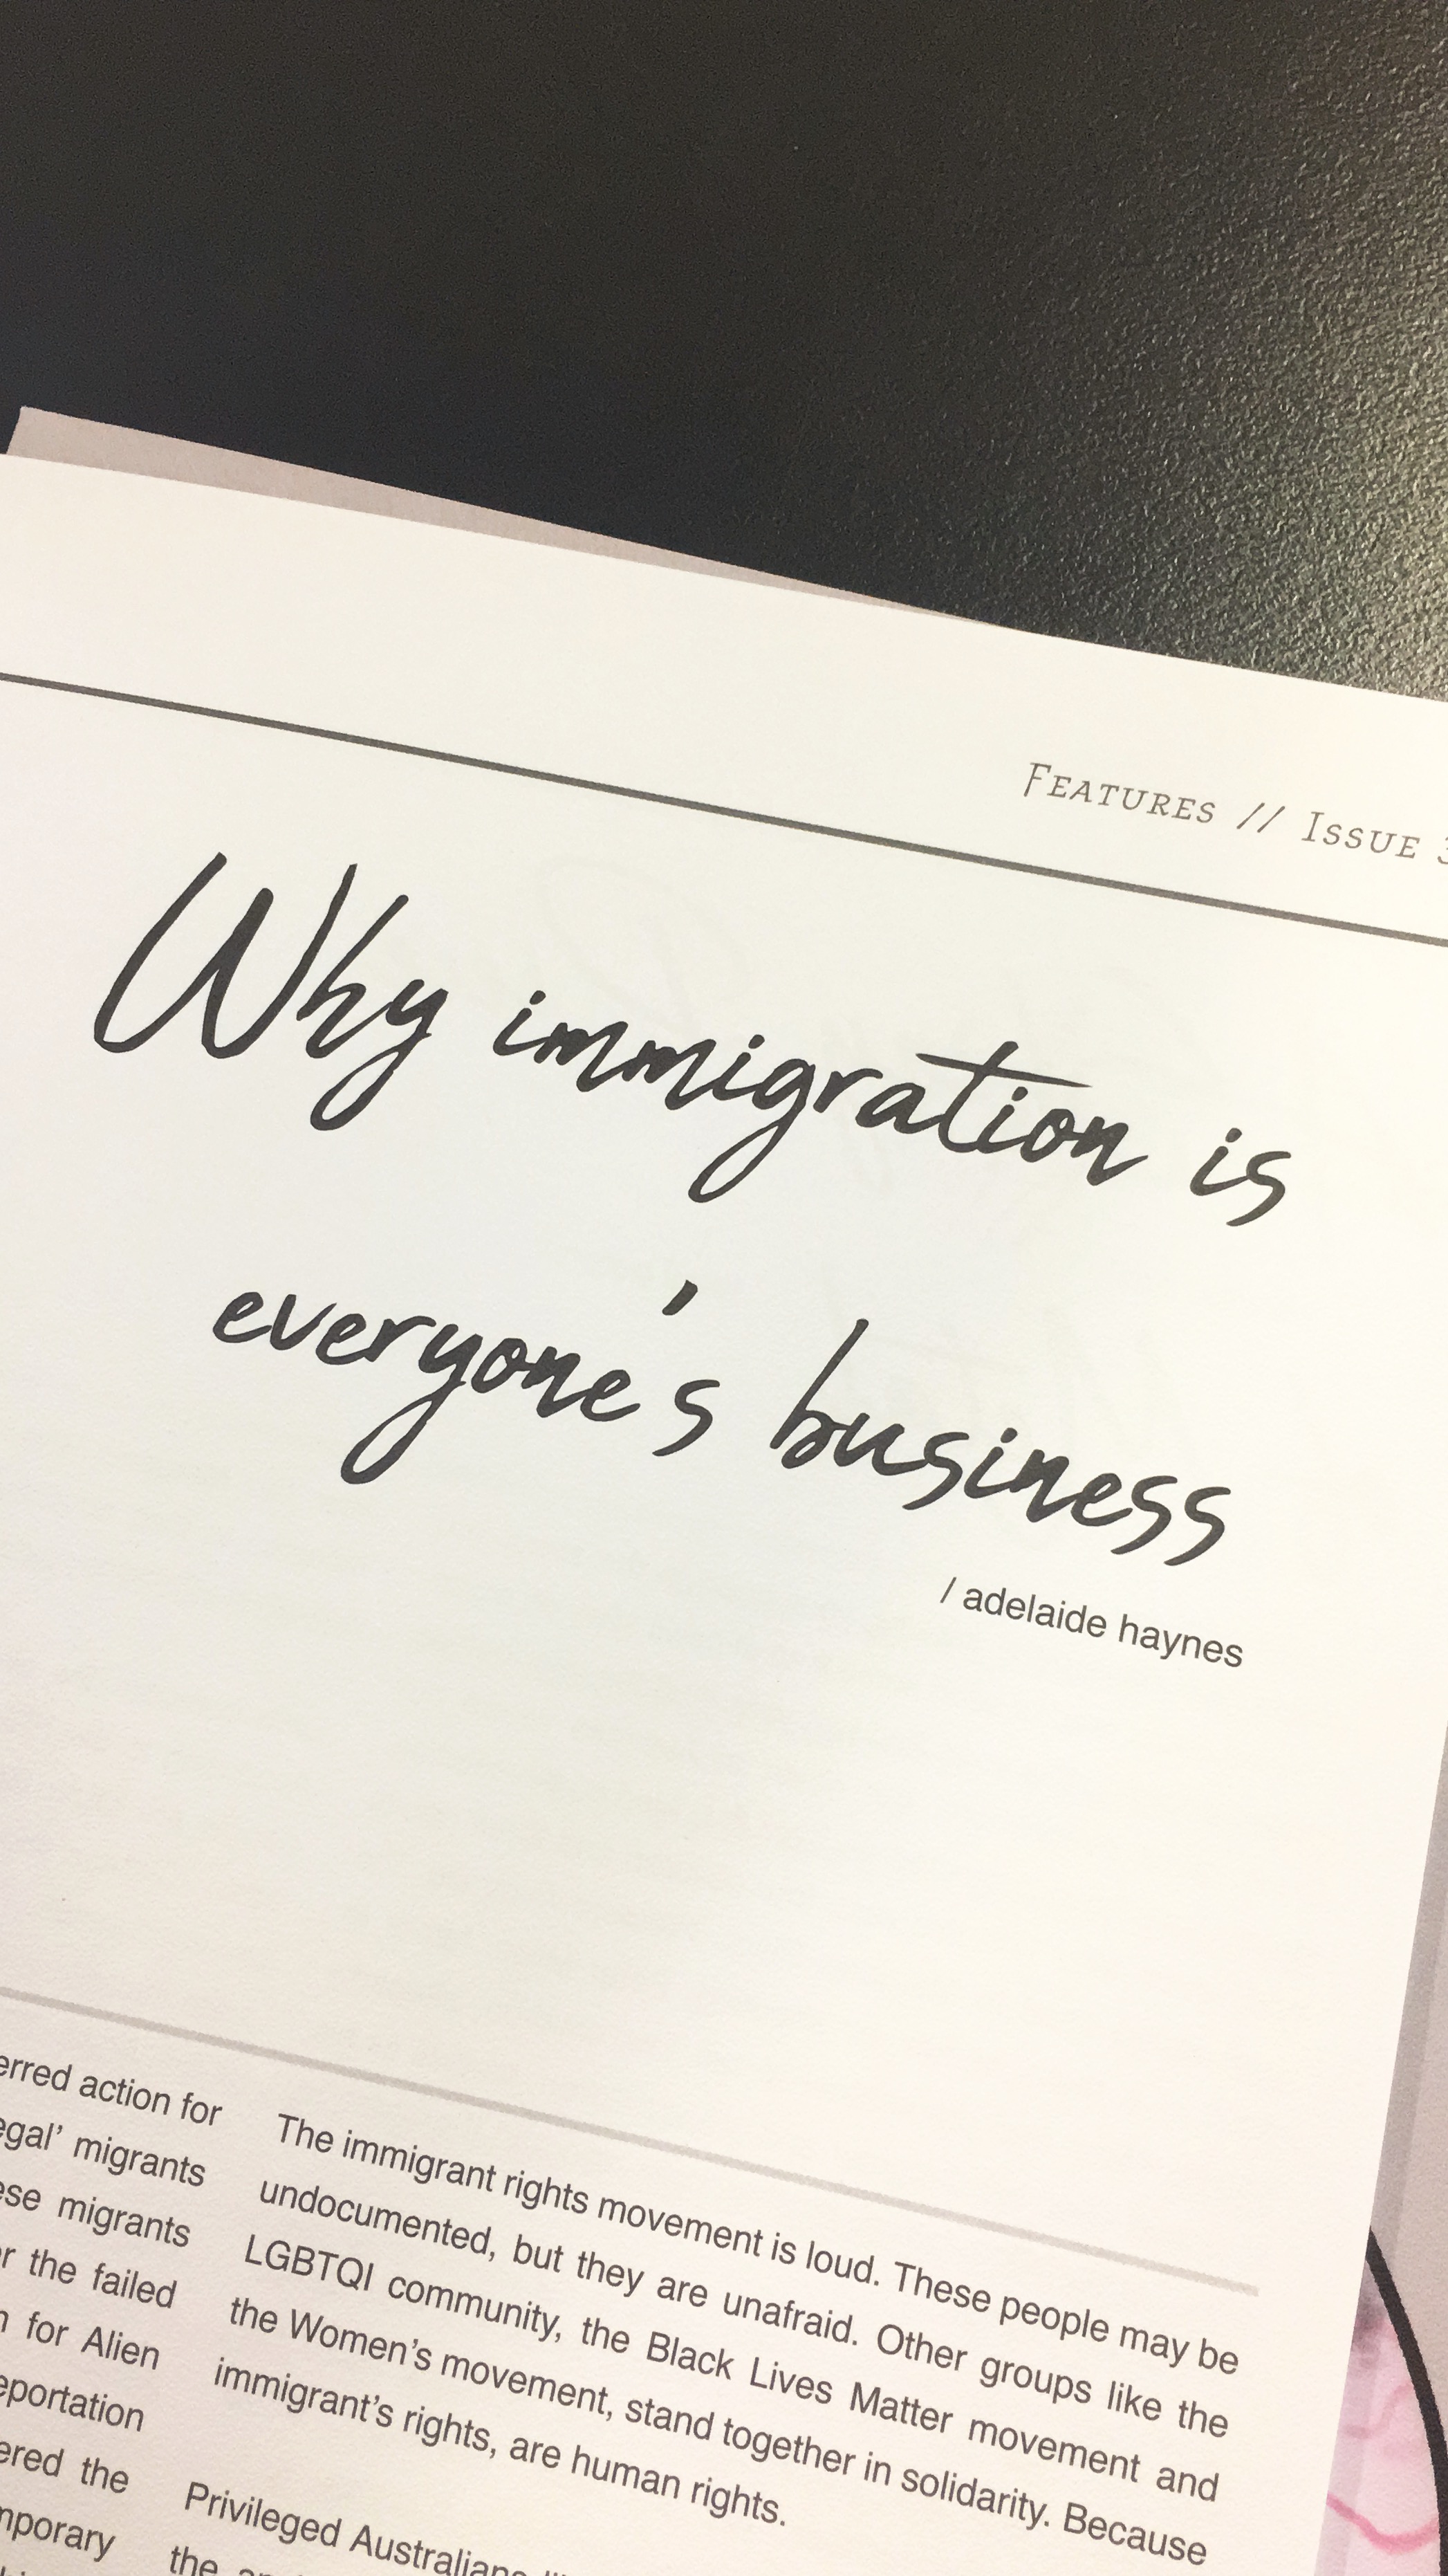 FEATURES // ISSUE
Why immigration is
everyone's business
/ adelaide haynes
action for
migrants
migrants
the failed
for Alien
the
The immigrant rights movement is loud. These people may be
undocumented, but they are unafraid. Other groups like the
LGBTQI community, the Black Lives Matter movement and
the Women's movement, stand together in solidarity. Because
immigrant's rights, are human rights.
Privileged Australians
the